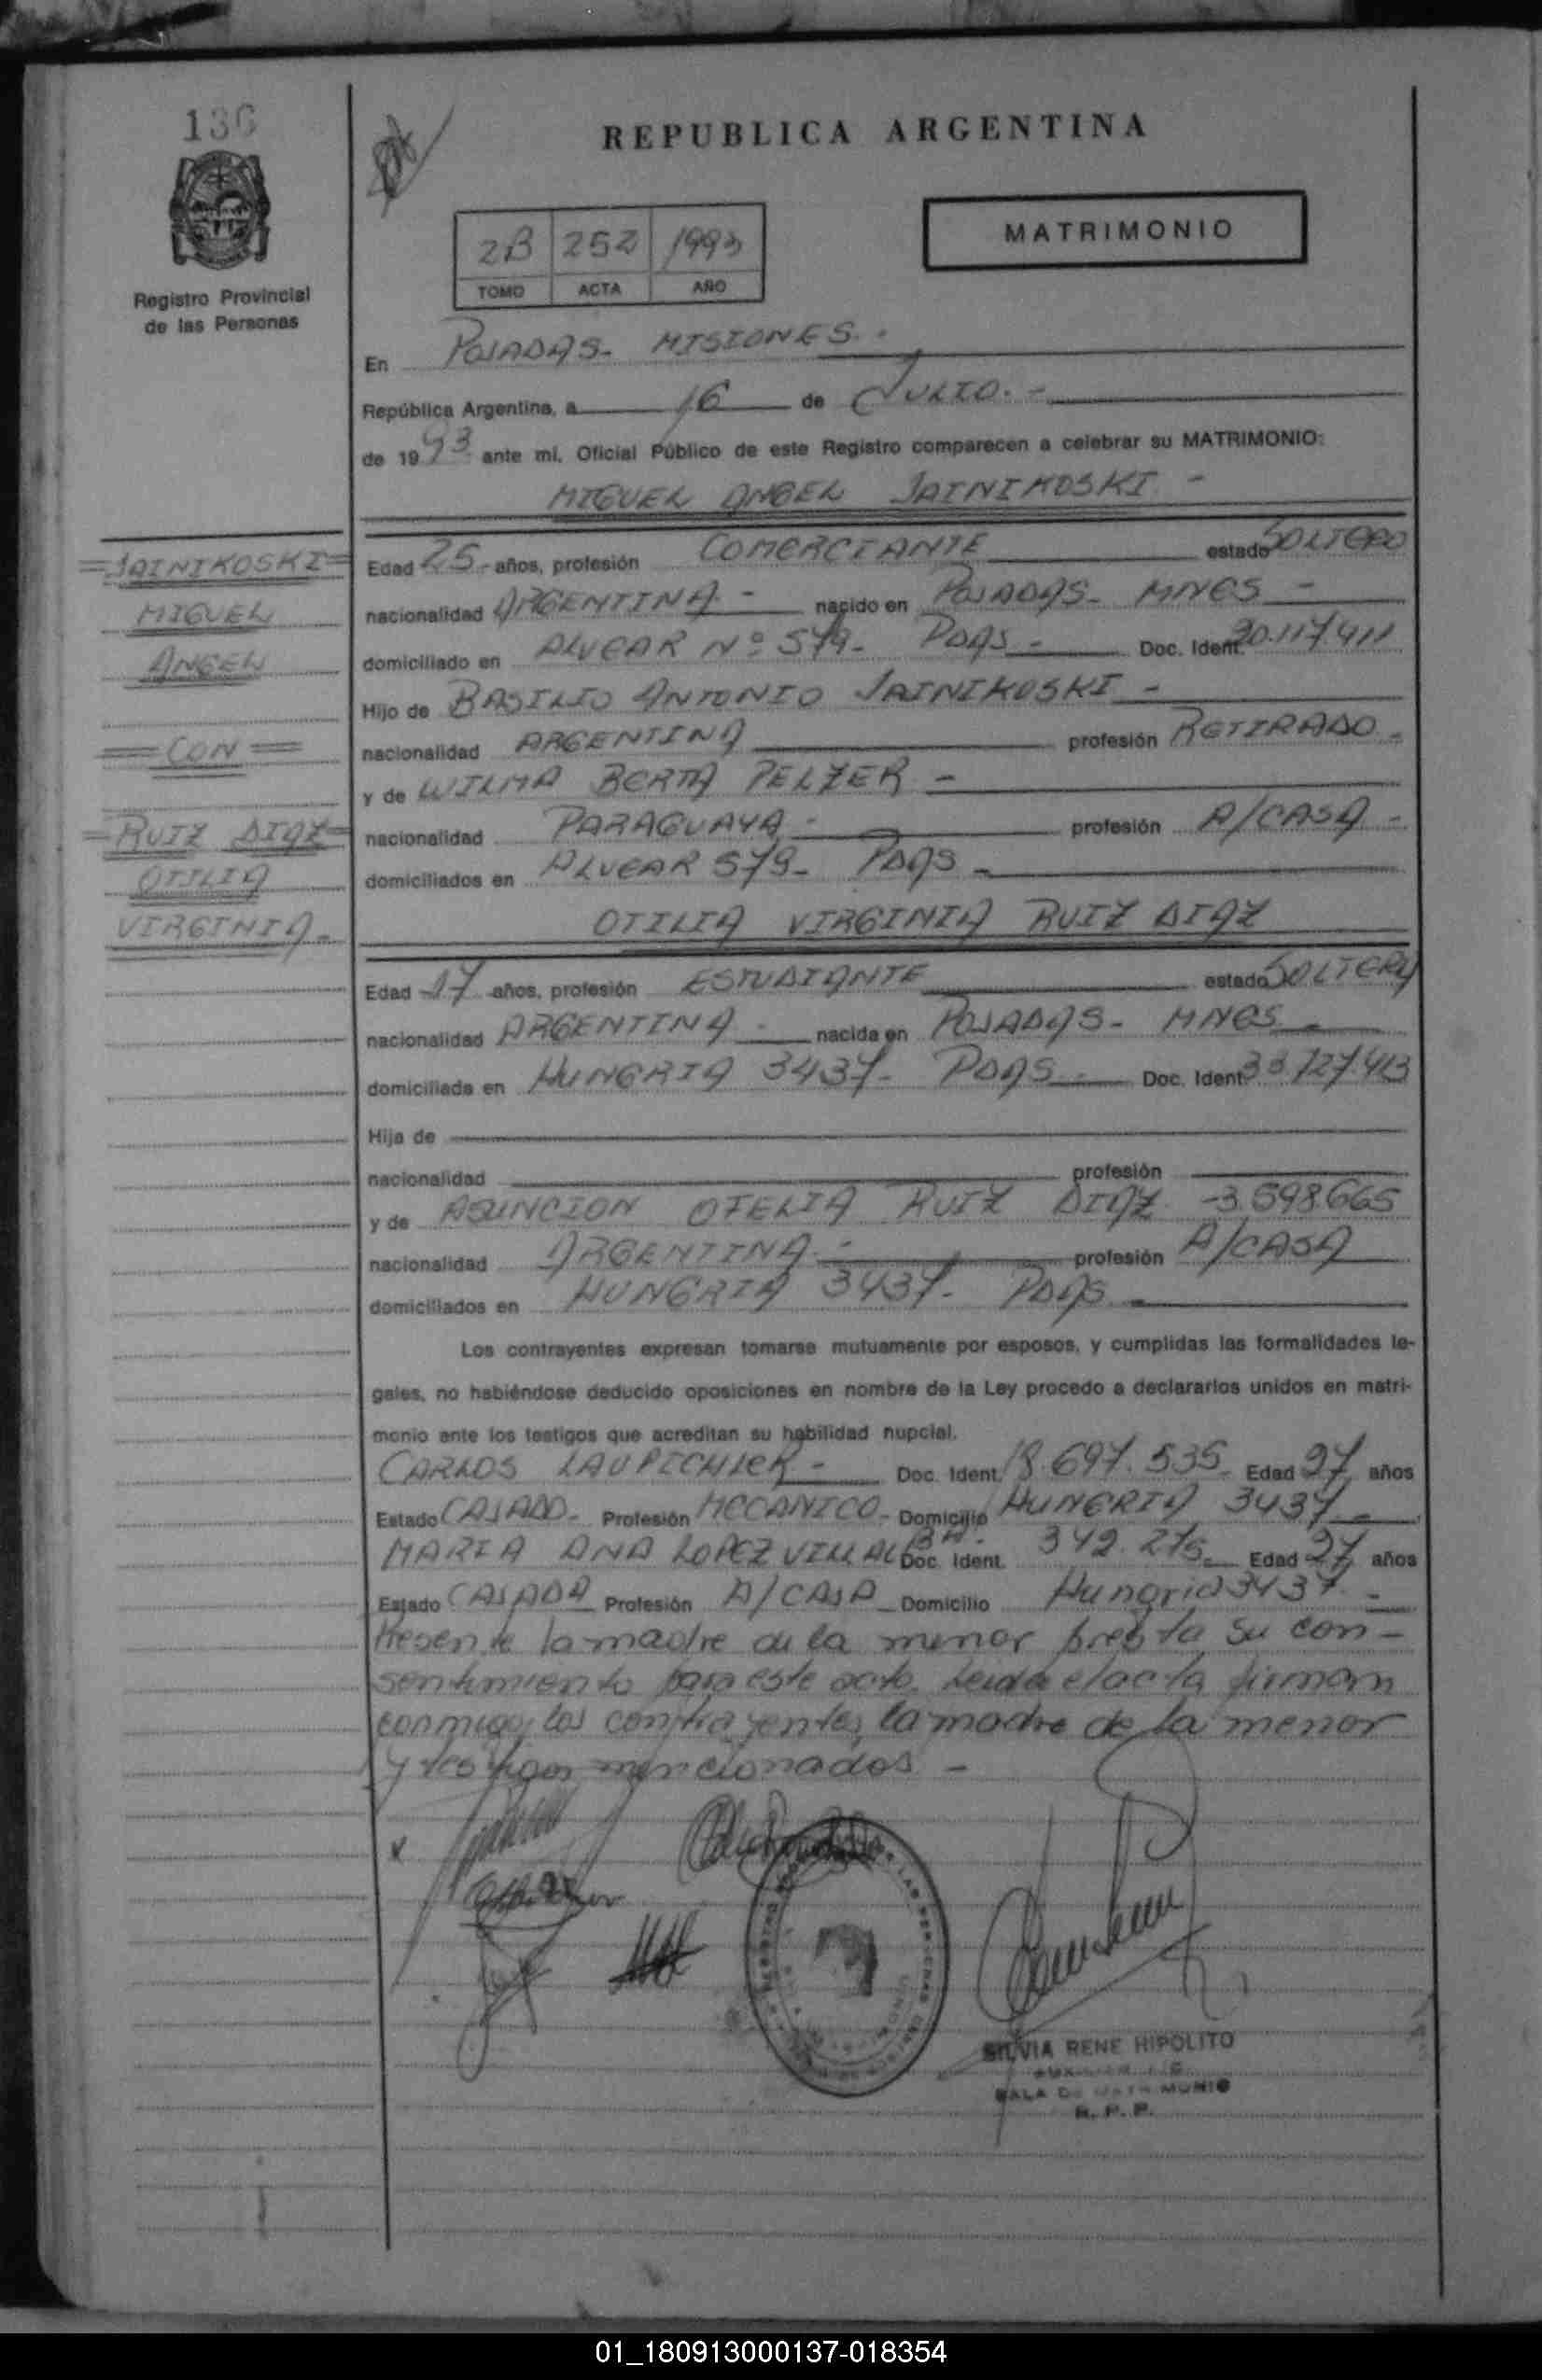 136
REPUBLICA ARGENTINA
2B 252 1993
TOMO ACTA AÑO
MATRIMONIO
Registro Provincial
de las Personas
En POSADAS - MISIONES. -
República Argentina, a 16 de JULIO. -
de 1993 ante mi, Oficial Público de este Registro comparecen a celebrar su MATRIMONIO:
MIGUEL ANGEL JAINIKOSKI -
=JAINIKOSKI=
MIGUEL
ANGEL
=CON=
=RUIZ DIAZ=
OTILIA
VIRGINIA.-
Edad 25 - años, profesión COMERCIANTE estado SOLTERO
nacionalidad ARGENTINA - nacido en POSADAS - MNES -
domiciliado en ALVEAR Nº 579 - PDAS - Doc. Ident. 20.117.411
Hijo de BASILIO ANTONIO JAINIKOSKI -
nacionalidad ARGENTINA profesión RETIRADO -
y de WILMA BERTA PELZER -
nacionalidad PARAGUAYA - profesión A/CASA -
domiciliados en ALVEAR 579 - PDAS -
OTILIA VIRGINIA RUIZ DIAZ
Edad 17 años, profesión ESTUDIANTE estado SOLTERA
nacionalidad ARGENTINA - nacida en POSADAS - MNES -
domiciliada en HUNGRIA 3437 - PDAS - Doc. Ident. 33.727.413
Hija de
nacionalidad profesión
y de ASUNCION OFELIA RUIZ DIAZ - 3.598.665
nacionalidad ARGENTINA - profesión A/CASA
domiciliados en HUNGRIA 3437 - PDAS -
Los contrayentes expresan tomarse mutuamente por esposos, y cumplidas las formalidades le-
gales, no habiéndose deducido oposiciones en nombre de la Ley procedo a declararlos unidos en matri-
monio ante los testigos que acreditan su habilidad nupcial.
CARLOS LAUPICHLER - Doc. Ident. 18.697.535 Edad 27 años
Estado CASADO - Profesión MECANICO - Domicilio HUNGRIA 3437 -
MARIA ANA LOPEZ VILLALBA - Doc. Ident. 342.275 Edad 27 años
Estado CASADA Profesión A/CASA Domicilio Hungria 3437 -
Presente la madre de la menor presta su con-
sentimiento para este acto. Leida el acta firman
conmigo, los contrayentes, la madre de la menor
y testigos mencionados -
SILVIA RENE HIPOLITO
SALA DE MATRIMONIO
R. P. P.
01_180913000137-018354